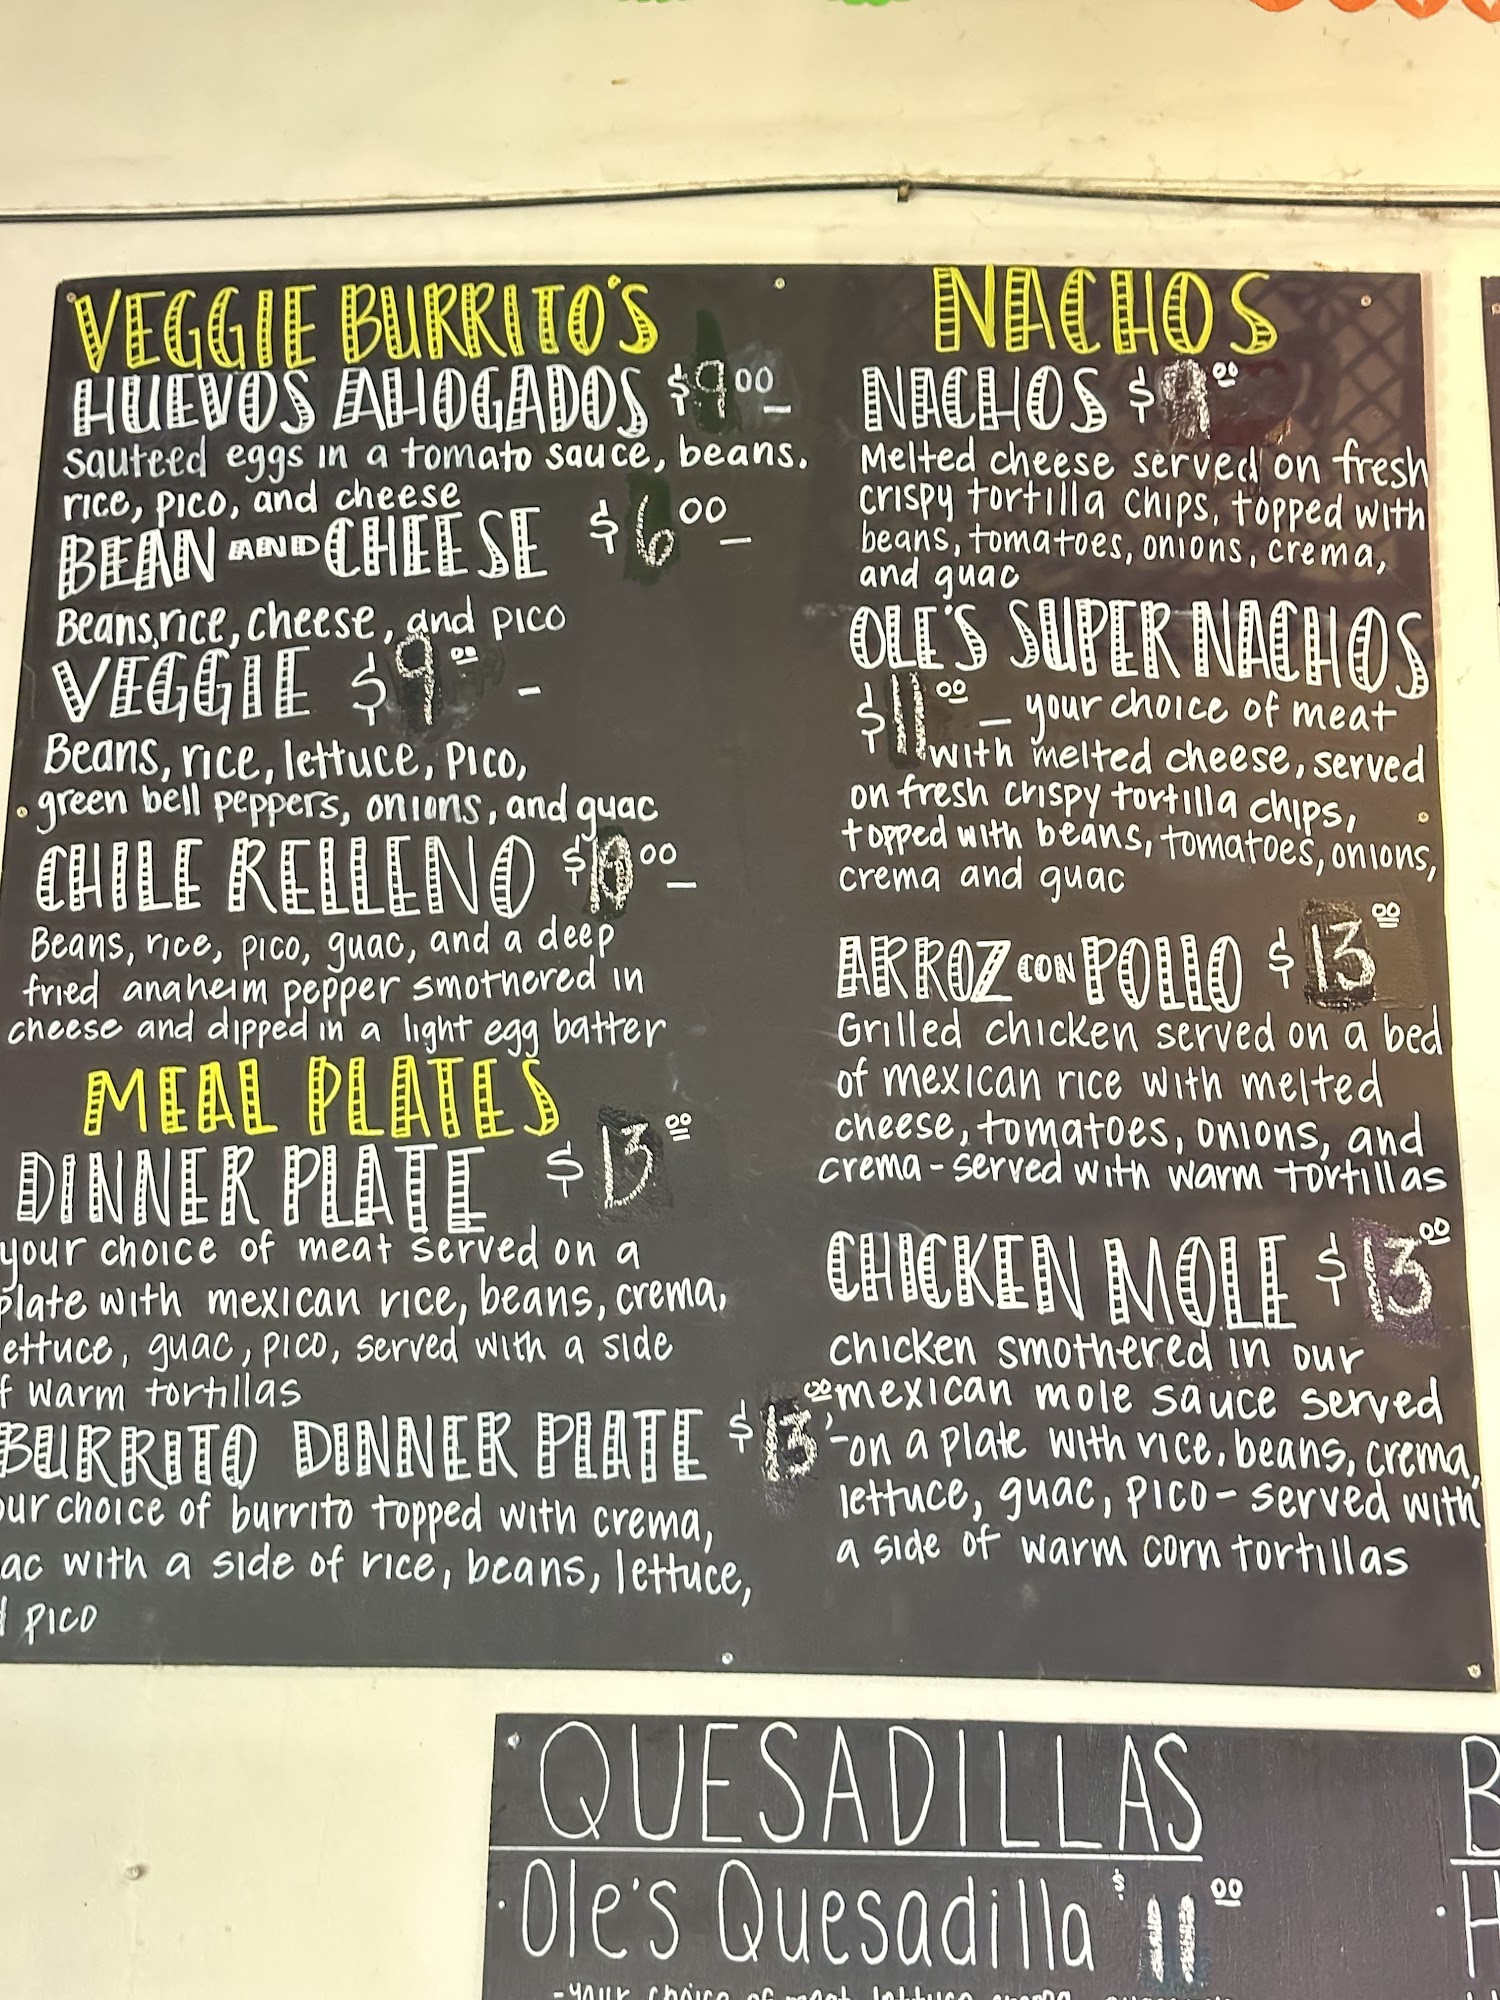 VEGGIE BURRITO'S
HUEVOS AHOGADOS $9.00 –
sauteed eggs in a tomato sauce, beans.
rice, pico, and cheese
BEAN AND CHEESE $6.00 –
Beans, rice, cheese, and pico
VEGGIE $9.00 –
Beans, rice, lettuce, pico,
green bell peppers, onions, and guac
CHILE RELLENO $10.00 –
Beans, rice, pico, guac, and a deep
fried anaheim pepper smothered in
cheese and dipped in a light egg batter
MEAL PLATES
DINNER PLATE $13.00
your choice of meat served on a
plate with mexican rice, beans, crema,
ettuce, guac, pico, served with a side
f warm tortillas
BURRITO DINNER PLATE $13.00
our choice of burrito topped with crema,
ac with a side of rice, beans, lettuce,
d pico
NACHOS
NACHOS $9.00
Melted cheese served on fresh
crispy tortilla chips, topped with
beans, tomatoes, onions, crema,
and guac
OLE'S SUPER NACHOS
$11.00 – your choice of meat
with melted cheese, served
on fresh crispy tortilla chips,
topped with beans, tomatoes, onions,
crema and guac
ARROZ CON POLLO $13.00
Grilled chicken served on a bed
of mexican rice with melted
cheese, tomatoes, onions, and
crema - served with warm tortillas
CHICKEN MOLE $13.00
chicken smothered in our
mexican mole sauce served
on a plate with rice, beans, crema,
lettuce, guac, pico - served with
a side of warm corn tortillas
QUESADILLAS
· Ole's Quesadilla $11.00
- your choice of meat lettuce
B
· H